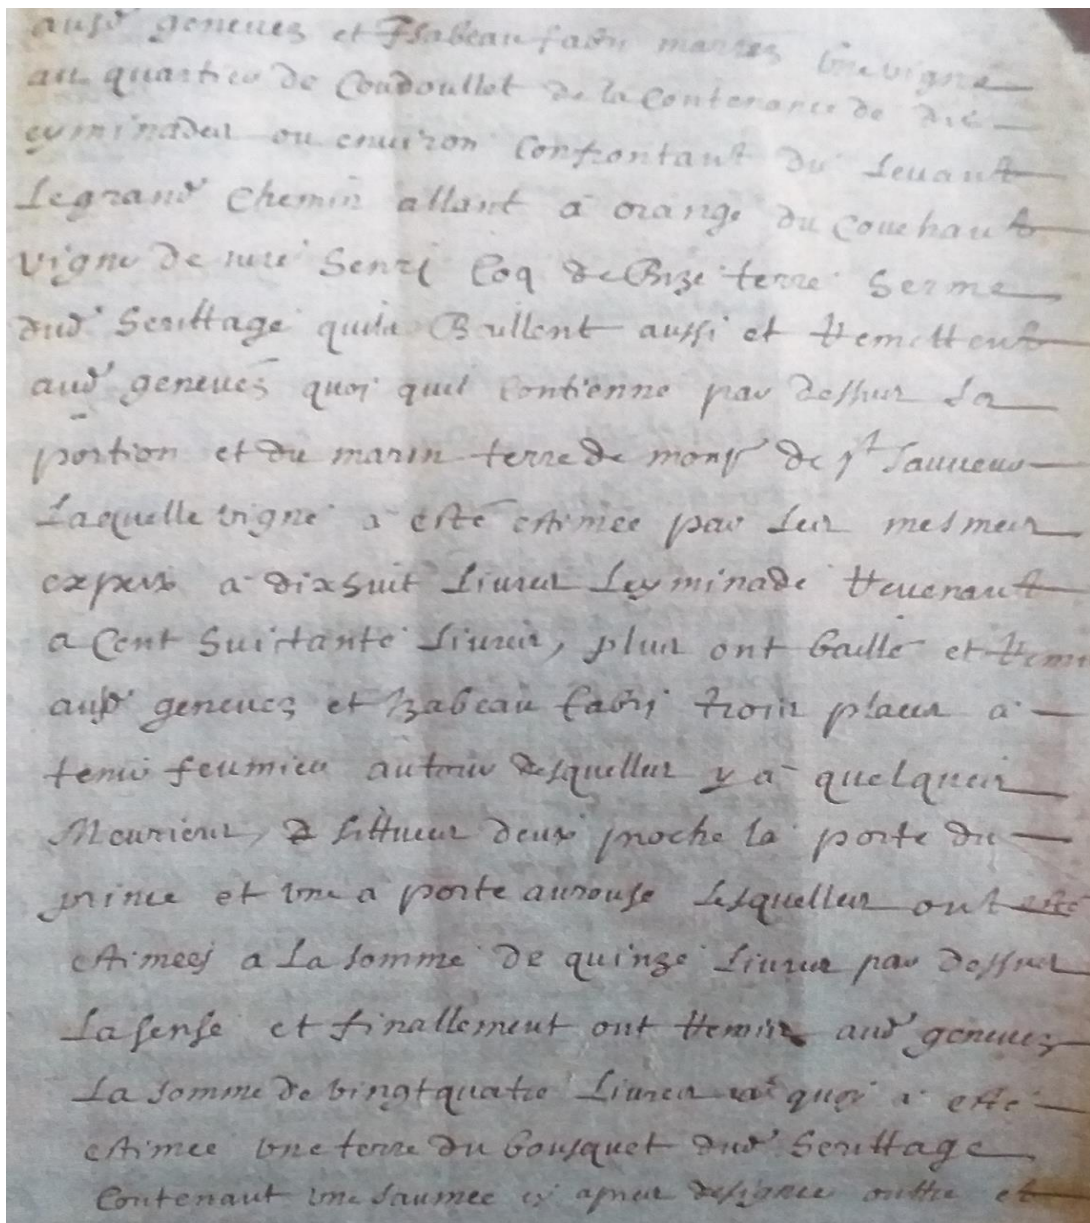 ausd geneves et Isabeau fabri maries une vigne
au quartier de Coudoullet de la Contenance de dix
eyminades ou environ Confrontant du levant
le grand Chemin allant a orange du Couchant
vigne de Henri Coq de Bize terre herme
dud herittage quils Baillent aussi et Remettent
aud geneves quoi quil Contienne par dessus la
portion et du marin terre de monsr de st Sauveur
Laquelle vigne a esté estimee par les mesmes
expers a dixhuit livres leyminade Revenant
a Cent huittante livres, plus ont baillé et Remis
ausd geneves et Izabeau fabri trois places a
tenir feumier autour desquelles y a quelques
Meuriers, sittuees deux proche la porte du
prince et une a porte aurouse lesquelles ont esté
estimees a la somme de quinze livres par dessus
la sense et finallement ont Remis aud geneves
la somme de vingtquatre livres quoi a esté
estimee une terre du bousquet dud herittage
Contenant une saumee cy apres designee outtre et